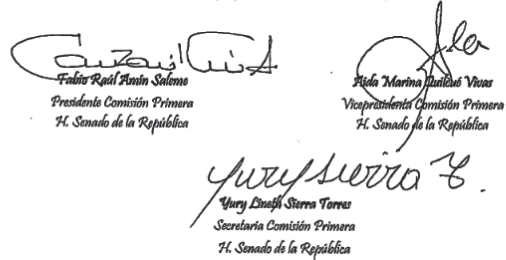 Fabio Raúl Amín Saleme
Presidente Comisión Primera
H. Senado de la República
Aida Marina Quilcué Vivas
Vicepresidenta Comisión Primera
H. Senado de la República
Yury Sierra T.
Yury Lineth Sierra Torres
Secretaria Comisión Primera
H. Senado de la República